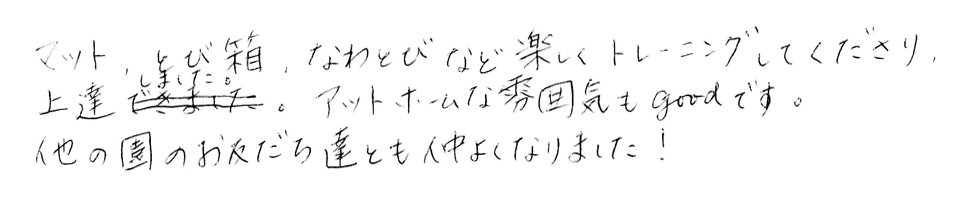 マット、とび箱、なわとびなど楽しくトレーニングしてくださり、
上達しました。アットホームな雰囲気もgoodです。
他の園のお友だち達とも仲よくなりました!